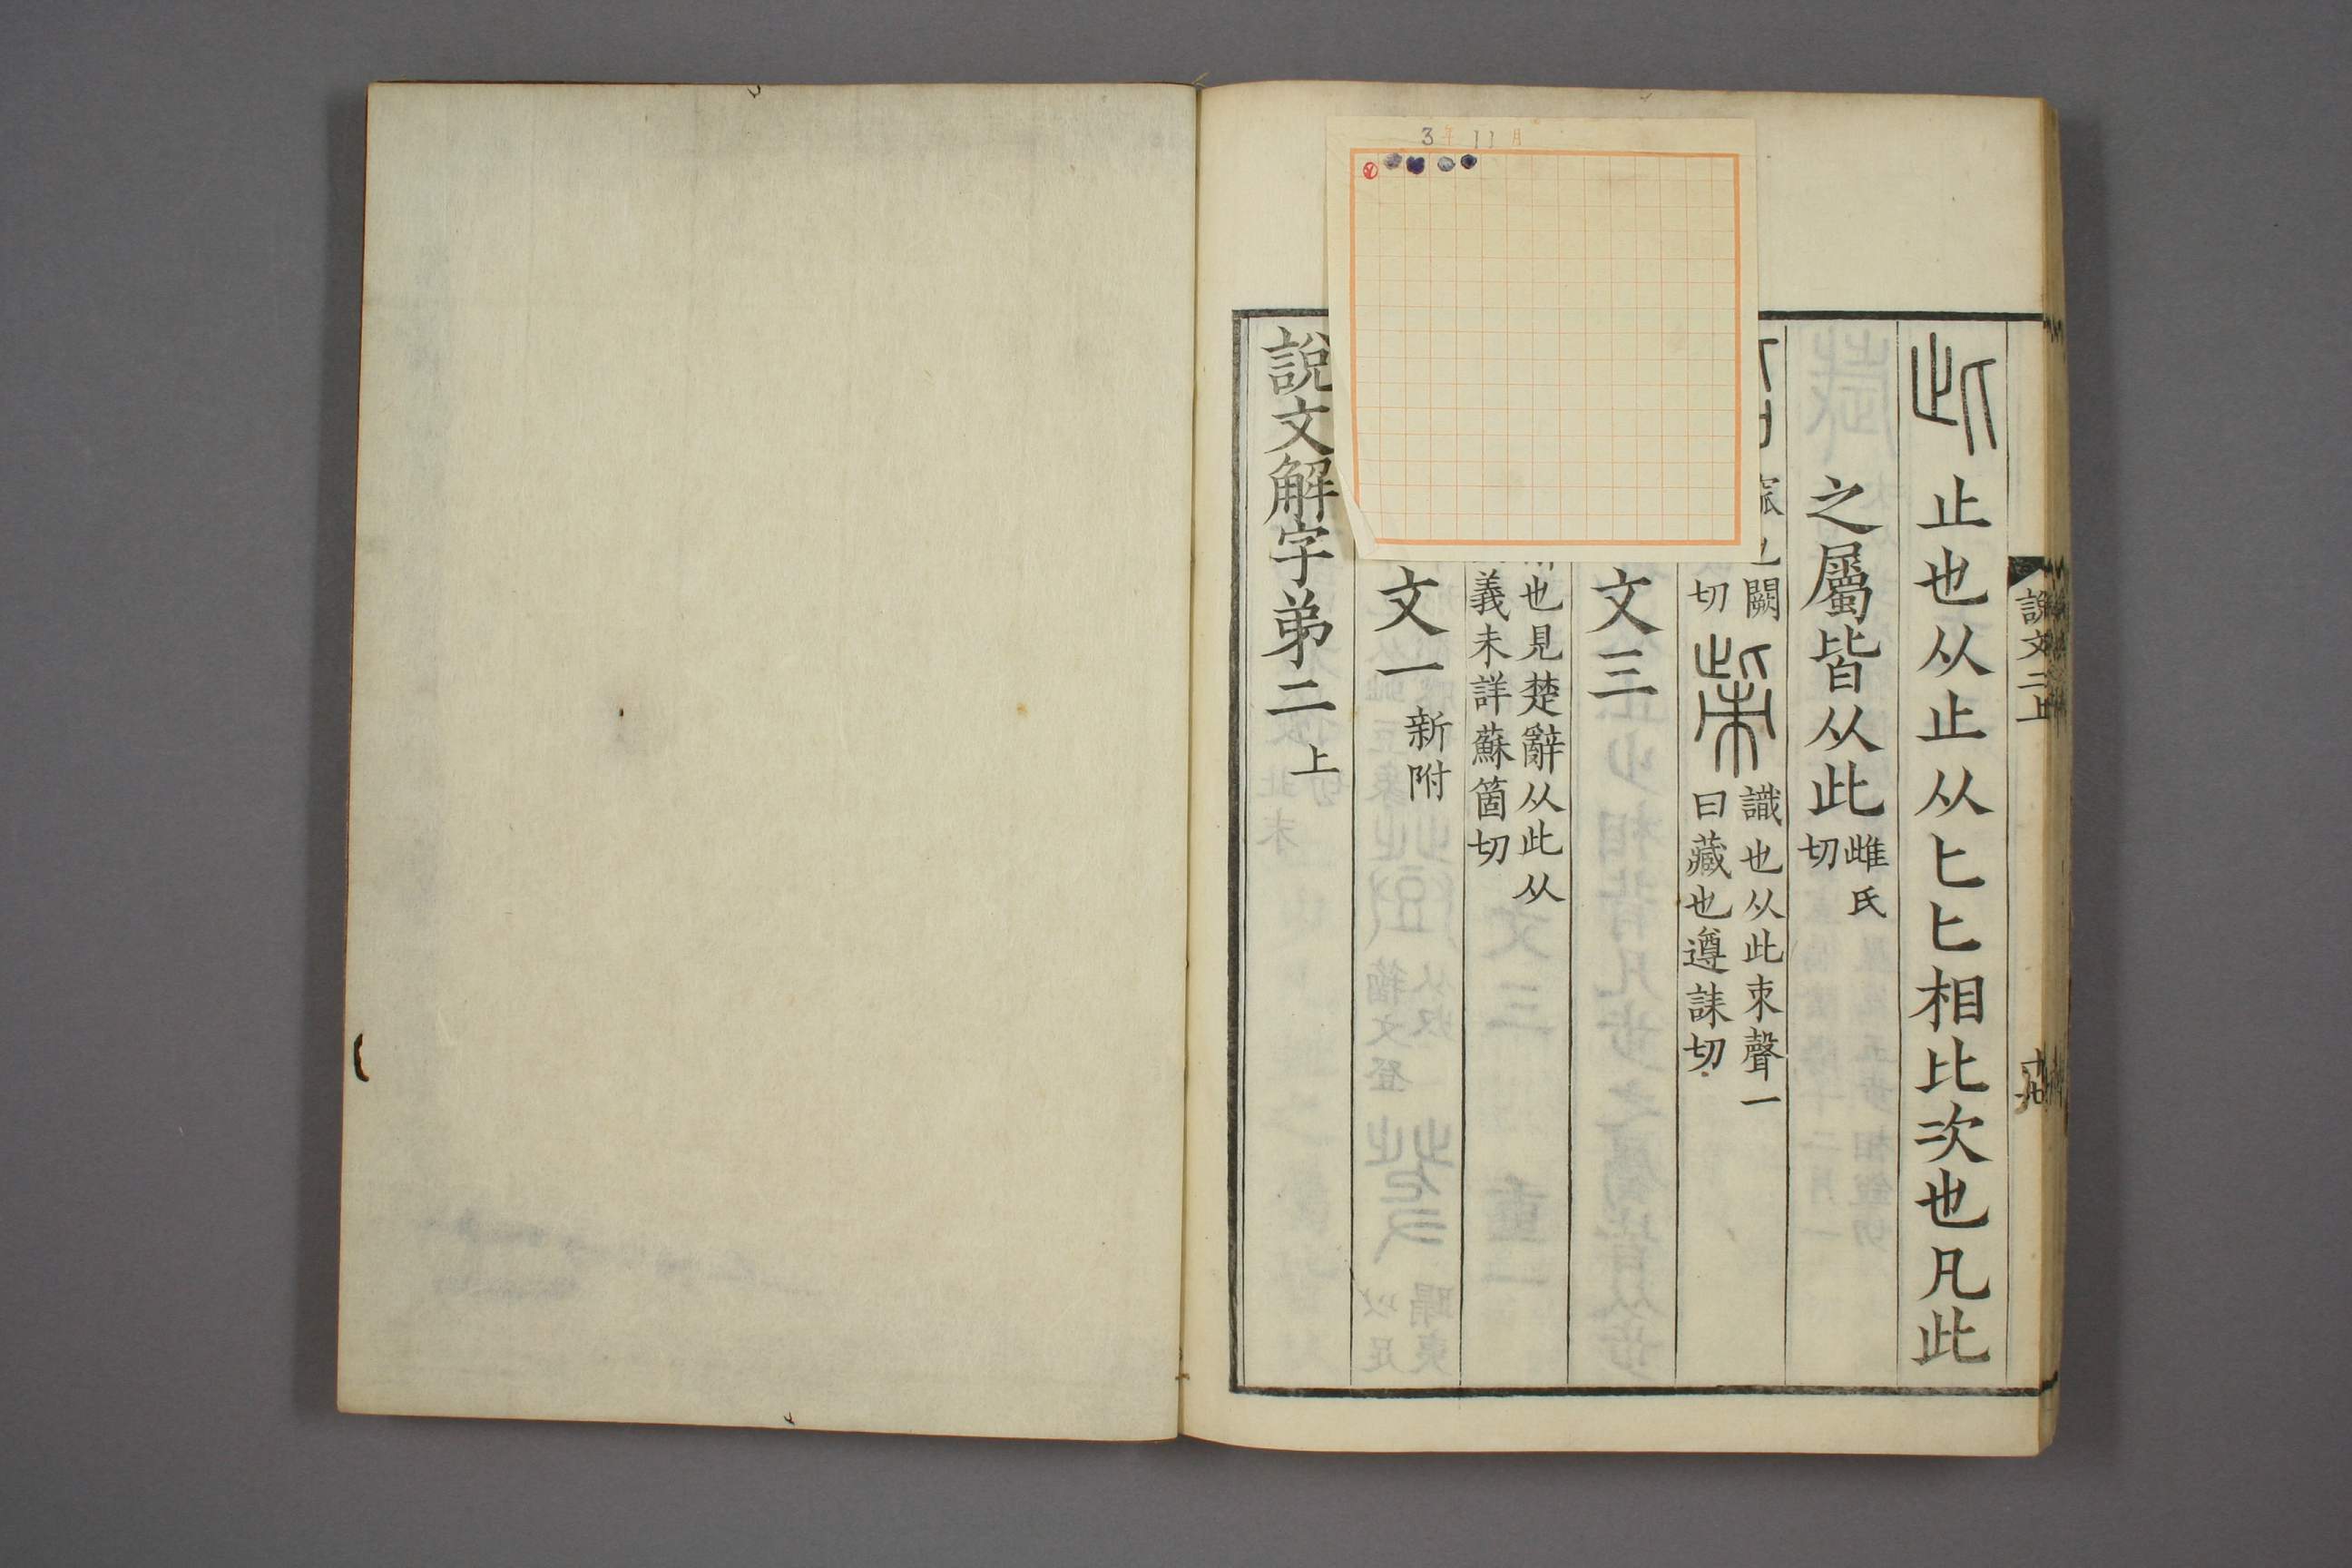 此 止也从止从匕匕相比次也凡此
之屬皆从此 雌氏
切
也闕
切
㭰 識也从此朿聲一
曰藏也遵誄切
文三
也見楚辭从此从
義未詳蘇箇切
文一 新附
說文解字弟二 上
說文二上
3年11月